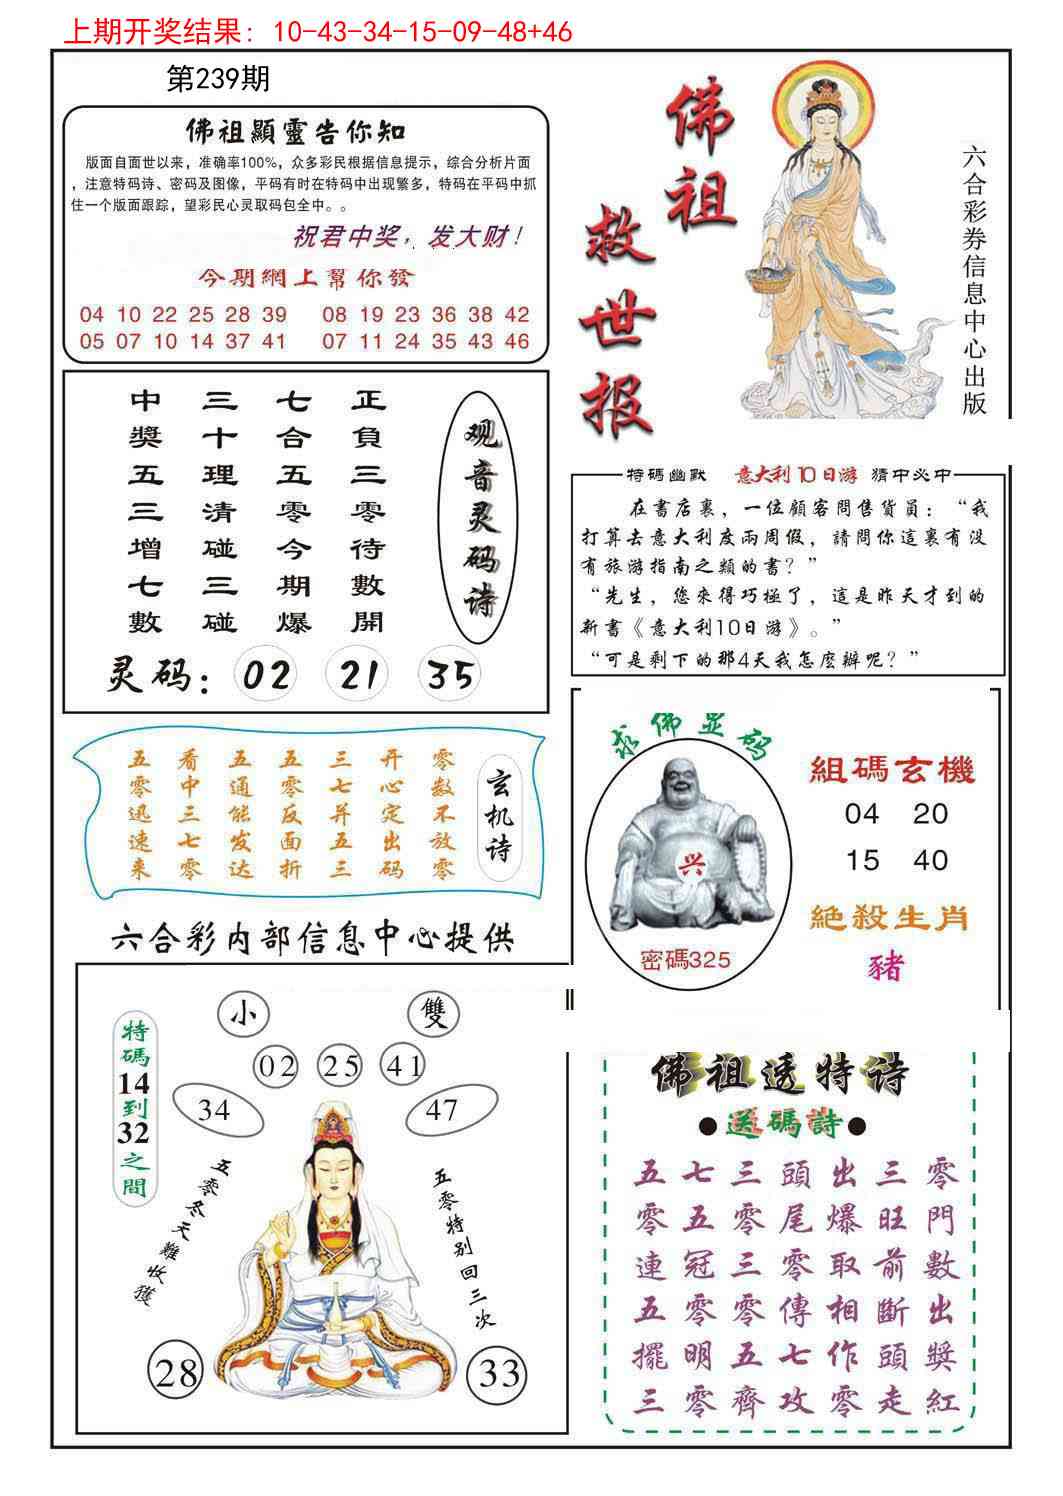 上期开奖结果：10-43-34-15-09-48+46
第239期
佛祖顯靈告你知
版面自面世以来，准确率100%，众多彩民根据信息提示，综合分析片面
，注意特码诗、密码及图像，平码有时在特码中出现繁多，特码在平码中抓
住一个版面跟踪，望彩民心灵取码包全中。。
祝君中奖，发大财！
今期網上幫你發
04 10 22 25 28 39 08 19 23 36 38 42
05 07 10 14 37 41 07 11 24 35 43 46
佛祖
救世报
六合彩券信息中心出版
观音灵码诗
正負三零待數開
七合五零今期爆
三十理清碰三碰
中獎五三增七數
灵码：02 21 35
特碼幽默 意大利10日游 猜中必中
在書店裏，一位顧客問售貨員：“我
打算去意大利度兩周假，請問你這裏有没
有旅游指南之類的書？”
“先生，您來得巧極了，這是昨天才到的
新書《意大利10日游》。”
“可是剩下的那4天我怎麽辦呢？”
玄机诗
零数不放零
开心定出码
三七并五三
五零反面折
五通能发达
看中三七零
五零迅速来
求佛显码
兴
密碼325
組碼玄機
04 20
15 40
絶殺生肖
豬
六合彩内部信息中心提供
特碼14到32之間
小 雙
02 25 41
34 47
五零冬天難收獲
五零特别回三次
28 33
佛祖透特诗
●送碼詩●
五七三頭出三零
零五零尾爆旺門
連冠三零取前數
五零零傳相斷出
擺明五七作頭獎
三零齊攻零走紅